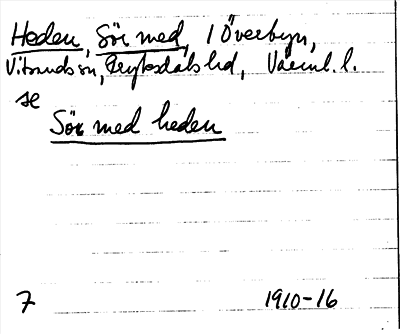 Heden, Sör med, i Överbyn,
Vitsands sn, Fryksdals hd, Värml. l.
se
Sör med heden
7 1910-16